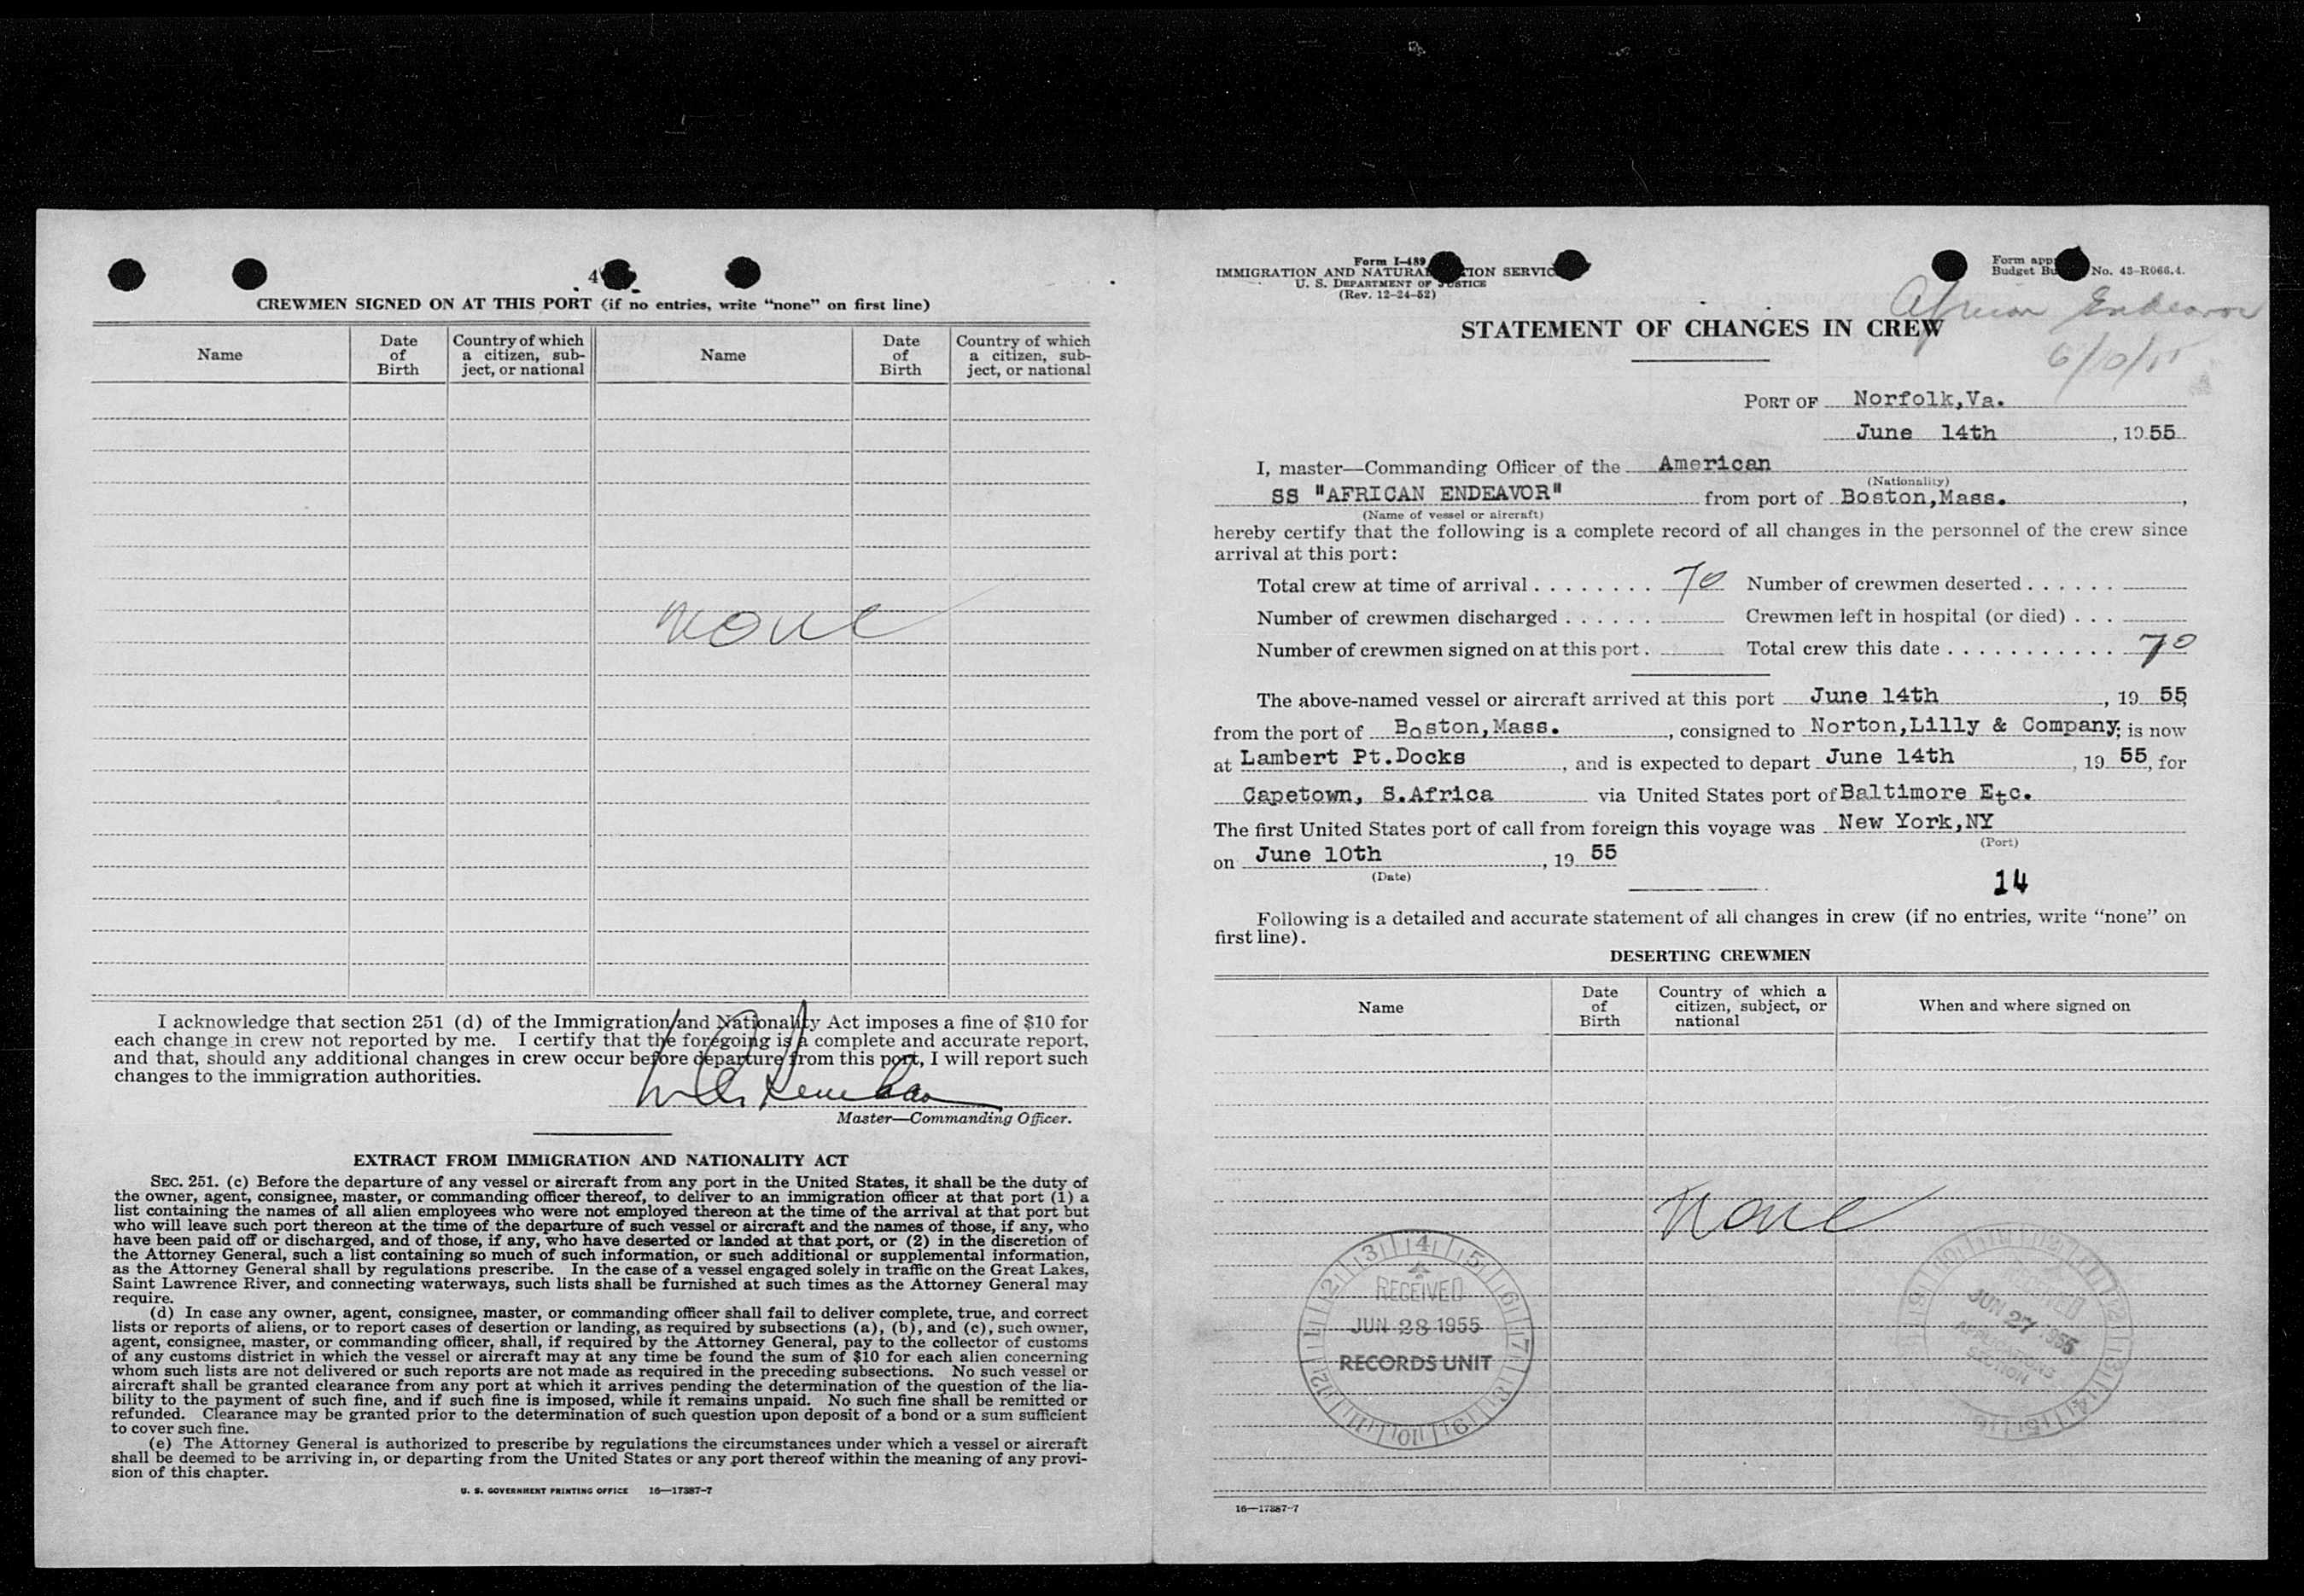 4
CREWMEN SIGNED ON AT THIS PORT (if no entries, write "none" on first line)
Name
Date of Birth
Country of which a citizen, subject, or national
Name
Date of Birth
Country of which a citizen, subject, or national
none
I acknowledge that section 251 (d) of the Immigration and Nationality Act imposes a fine of $10 for
each change in crew not reported by me. I certify that the foregoing is a complete and accurate report,
and that, should any additional changes in crew occur before departure from this port, I will report such
changes to the immigration authorities.
Master—Commanding Officer.
EXTRACT FROM IMMIGRATION AND NATIONALITY ACT
SEC. 251. (c) Before the departure of any vessel or aircraft from any port in the United States, it shall be the duty of
the owner, agent, consignee, master, or commanding officer thereof, to deliver to an immigration officer at that port (1) a
list containing the names of all alien employees who were not employed thereon at the time of the arrival at that port but
who will leave such port thereon at the time of the departure of such vessel or aircraft and the names of those, if any, who
have been paid off or discharged, and of those, if any, who have deserted or landed at that port, or (2) in the discretion of
the Attorney General, such a list containing so much of such information, or such additional or supplemental information,
as the Attorney General shall by regulations prescribe. In the case of a vessel engaged solely in traffic on the Great Lakes,
Saint Lawrence River, and connecting waterways, such lists shall be furnished at such times as the Attorney General may
require.
(d) In case any owner, agent, consignee, master, or commanding officer shall fail to deliver complete, true, and correct
lists or reports of aliens, or to report cases of desertion or landing, as required by subsections (a), (b), and (c), such owner,
agent, consignee, master, or commanding officer, shall, if required by the Attorney General, pay to the collector of customs
of any customs district in which the vessel or aircraft may at any time be found the sum of $10 for each alien concerning
whom such lists are not delivered or such reports are not made as required in the preceding subsections. No such vessel or
aircraft shall be granted clearance from any port at which it arrives pending the determination of the question of the lia-
bility to the payment of such fine, and if such fine is imposed, while it remains unpaid. No such fine shall be remitted or
refunded. Clearance may be granted prior to the determination of such question upon deposit of a bond or a sum sufficient
to cover such fine.
(e) The Attorney General is authorized to prescribe by regulations the circumstances under which a vessel or aircraft
shall be deemed to be arriving in, or departing from the United States or any port thereof within the meaning of any provi-
sion of this chapter.
U. S. GOVERNMENT PRINTING OFFICE 16—17387-7
Form I-489
IMMIGRATION AND SERVICE
U. S. DEPARTMENT OF JUSTICE
(Rev. 12-24-52)
Form
Budget No. 43-R066.4.
African Endeavor
6/10/55
STATEMENT OF CHANGES IN CREW
PORT OF Norfolk,Va.
June 14th, 1955
I, master—Commanding Officer of the American
(Nationality)
SS "AFRICAN ENDEAVOR" from port of Boston,Mass.,
(Name of vessel or aircraft)
hereby certify that the following is a complete record of all changes in the personnel of the crew since
arrival at this port:
Total crew at time of arrival . . . . . . . . 70 Number of crewmen deserted . . . . . .
Number of crewmen discharged . . . . . . Crewmen left in hospital (or died) . . .
Number of crewmen signed on at this port . Total crew this date . . . . . . . . . . . . 70
The above-named vessel or aircraft arrived at this port June 14th, 19 55
from the port of Boston,Mass., consigned to Norton,Lilly & Company; is now
at Lambert Pt.Docks, and is expected to depart June 14th, 19 55, for
Capetown, S.Africa via United States port of Baltimore Etc.
The first United States port of call from foreign this voyage was New York,NY
(Port)
on June 10th, 19 55
(Date)
14
Following is a detailed and accurate statement of all changes in crew (if no entries, write "none" on
first line).
DESERTING CREWMEN
Name
Date of Birth
Country of which a citizen, subject, or national
When and where signed on
None
RECEIVED
JUN 28 1955
RECORDS UNIT
JUN 27 1955
SECTION
16—17387-7